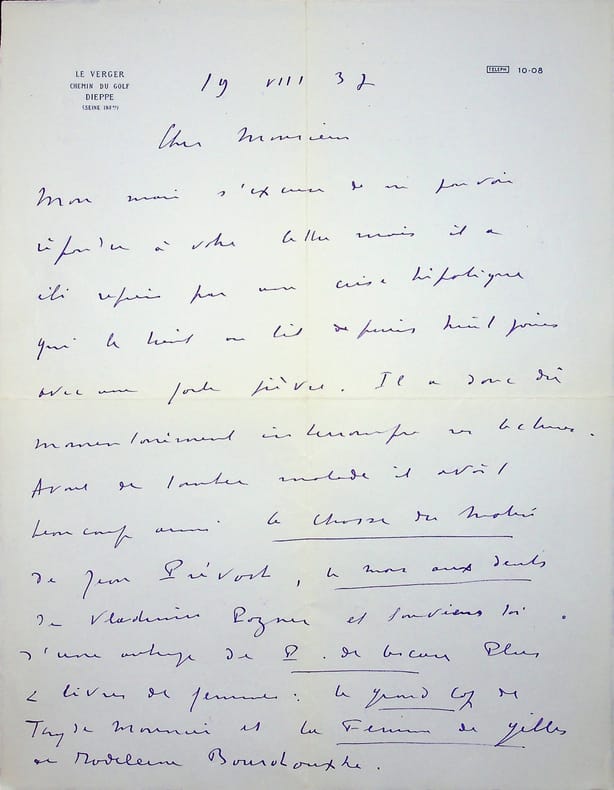 LE VERGER
CHEMIN DU GOLF
DIEPPE
(SEINE INFRE)
TÉLÉPH 10-08
19 VIII 37
Cher Monsieur
Mon mari s'excuse de ne pouvoir
répondre à votre lettre mais il a
été repris par une crise hépatique
qui le tient au lit depuis huit jours
avec une forte fièvre. Il a donc dû
momentanément interrompre ses lectures.
Avant de tomber malade il avait
beaucoup aimé la chasse du matin
de Jean Prévost, le mors aux dents
de Vladimir Pozner et Souviens toi
d'une auberge de P. de Lescure Plus
2 livres de femmes : le grand Coq de
Thyde Monnier et la Femme de Gilles
de Madeleine Bourdouxhe.